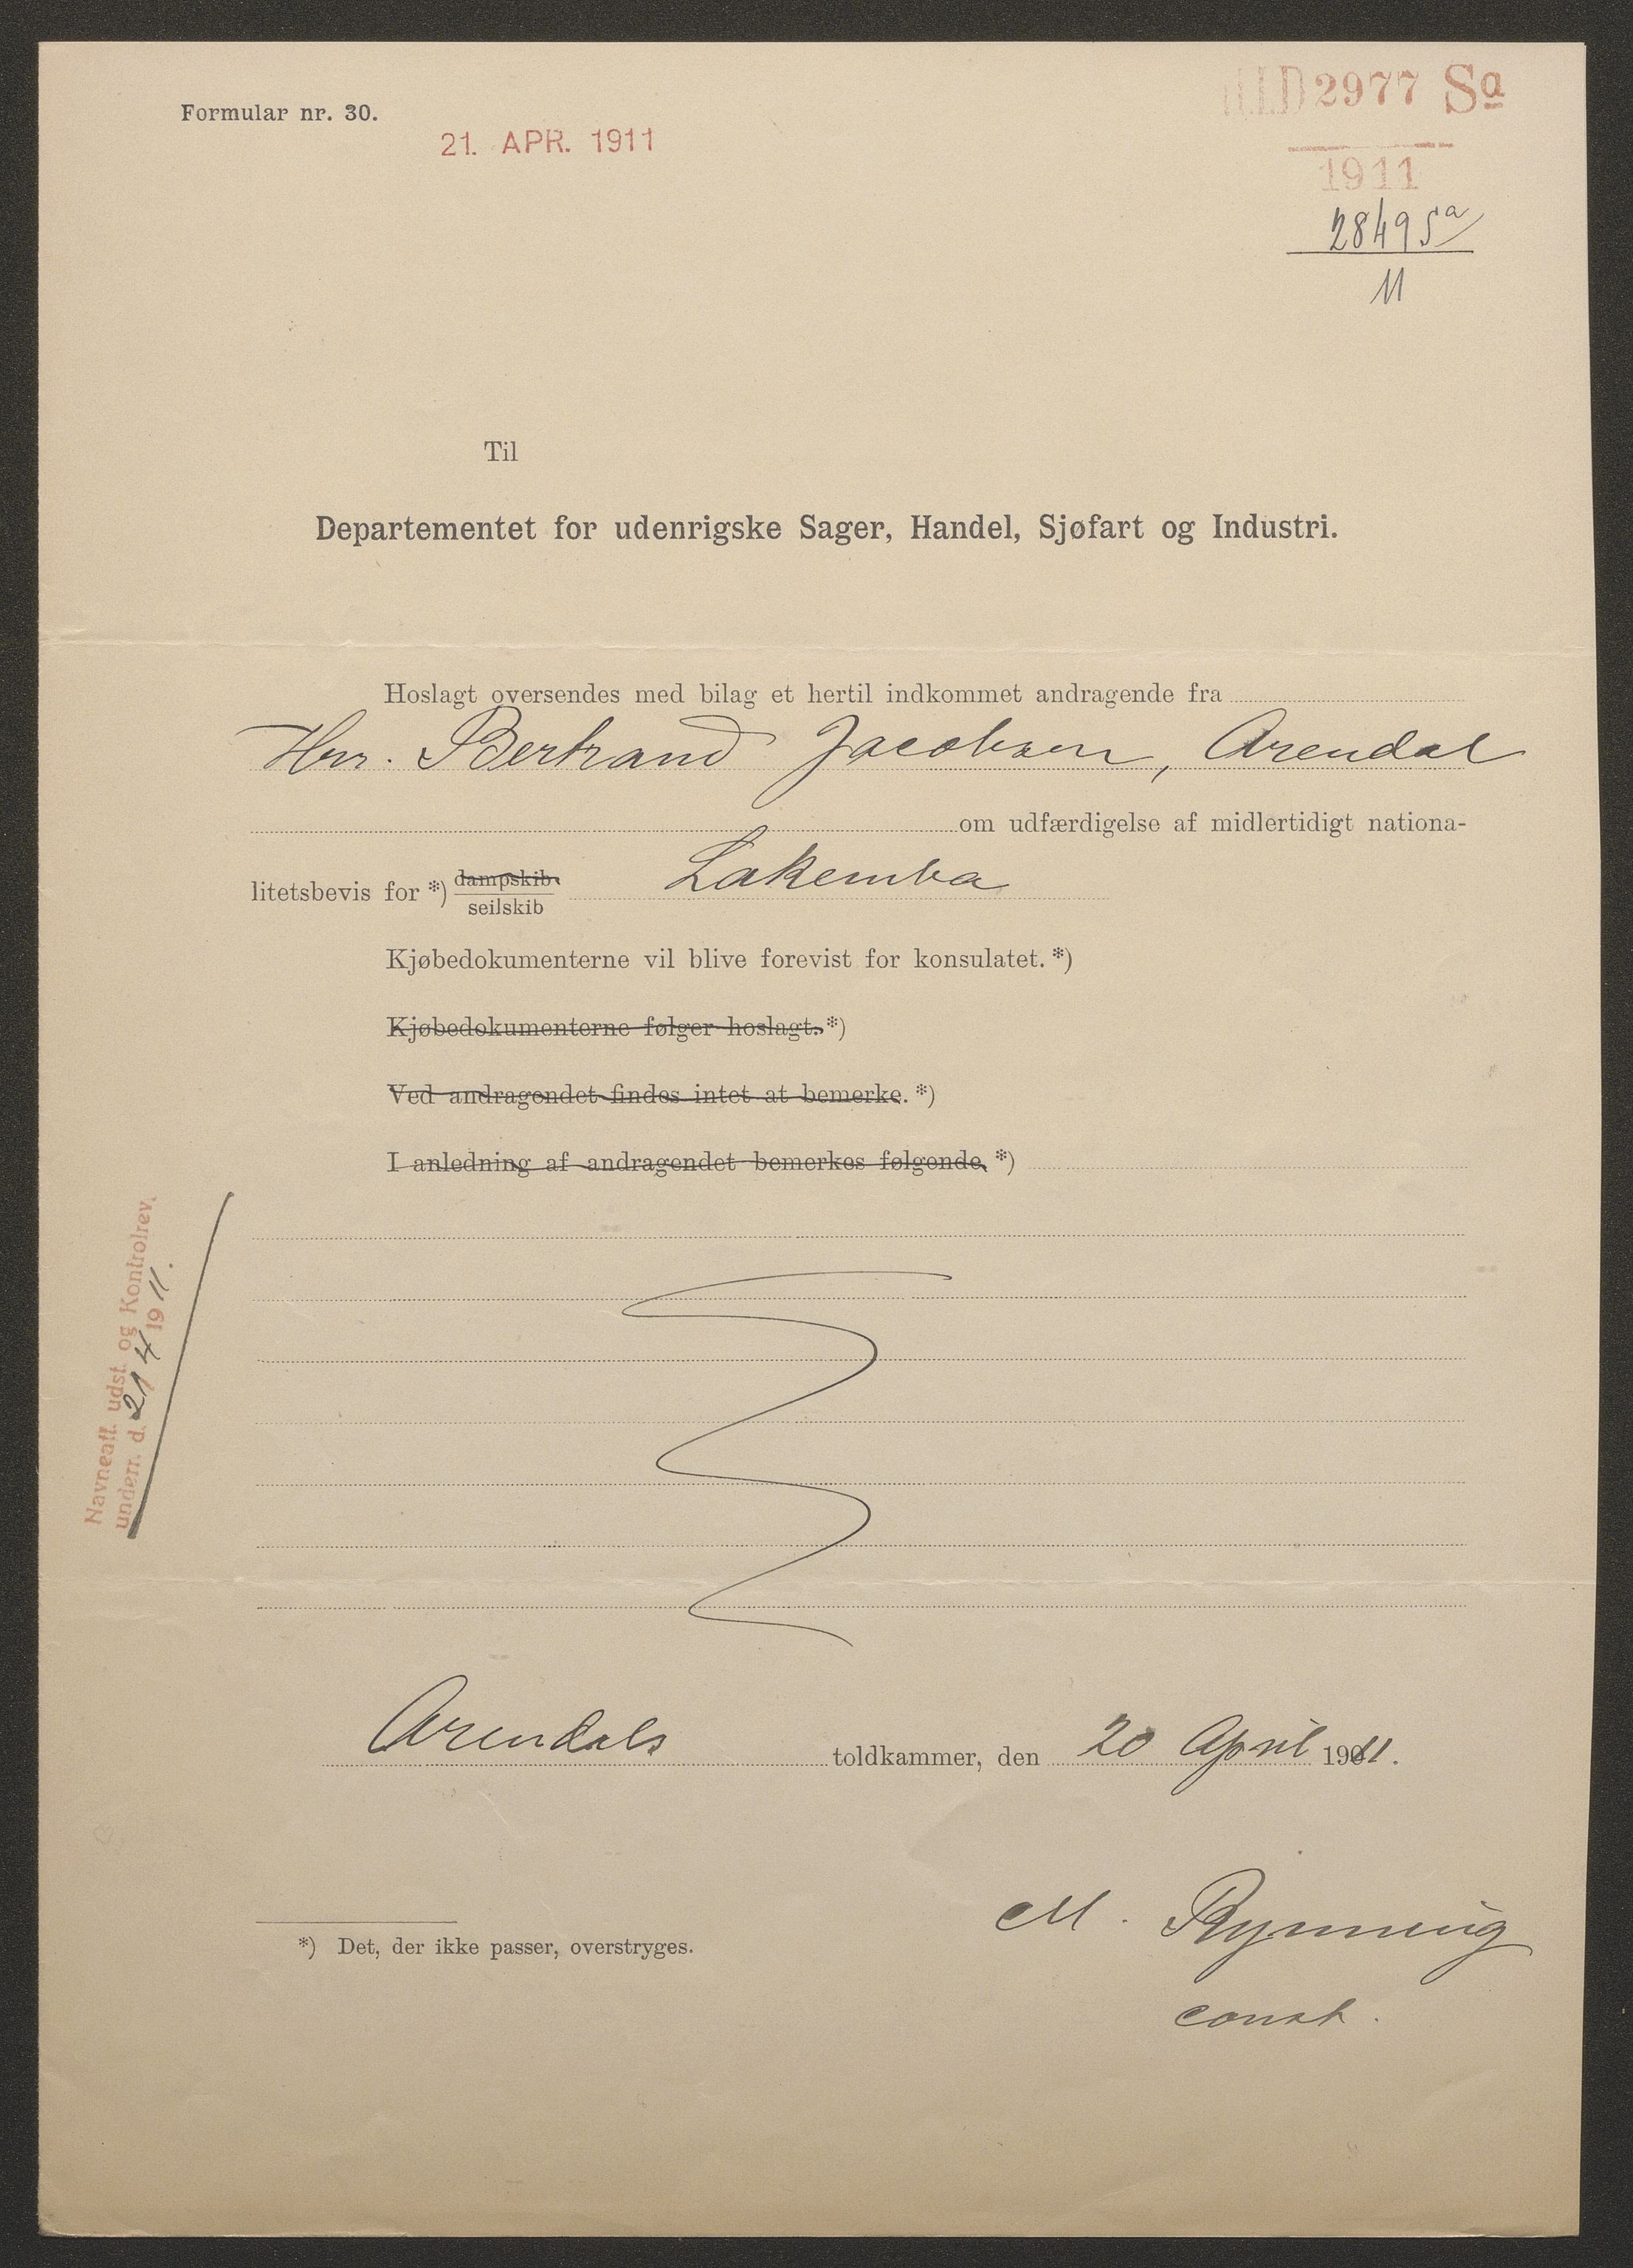 Formular nr. 30.
21. APR. 1911
2977 Sa
1911
2849 Sa
11
Til
Departementet for udenrigske Sager, Handel, Sjøfart og Industri.
Hoslagt oversendes med bilag et hertil indkommet andragende fra
Hrr. Bertrand Jacobsen, Arendal
om udfærdigelse af midlertidigt nationa-
litetsbevis for *) dampskib Lakemba
seilskib
Kjøbedokumenterne vil blive forevist for konsulatet. *)
Kjøbedokumenterne følger hoslagt. *)
Ved andragendet findes intet at bemerke. *)
I anledning af andragendet bemerkes følgende. *)
Navneatt. udst. og Kontrolrev.
underr. d. 21/4 1911.
Arendals toldkammer, den 20 April 1911.
M. Rynning
const.
*) Det, der ikke passer, overstryges.